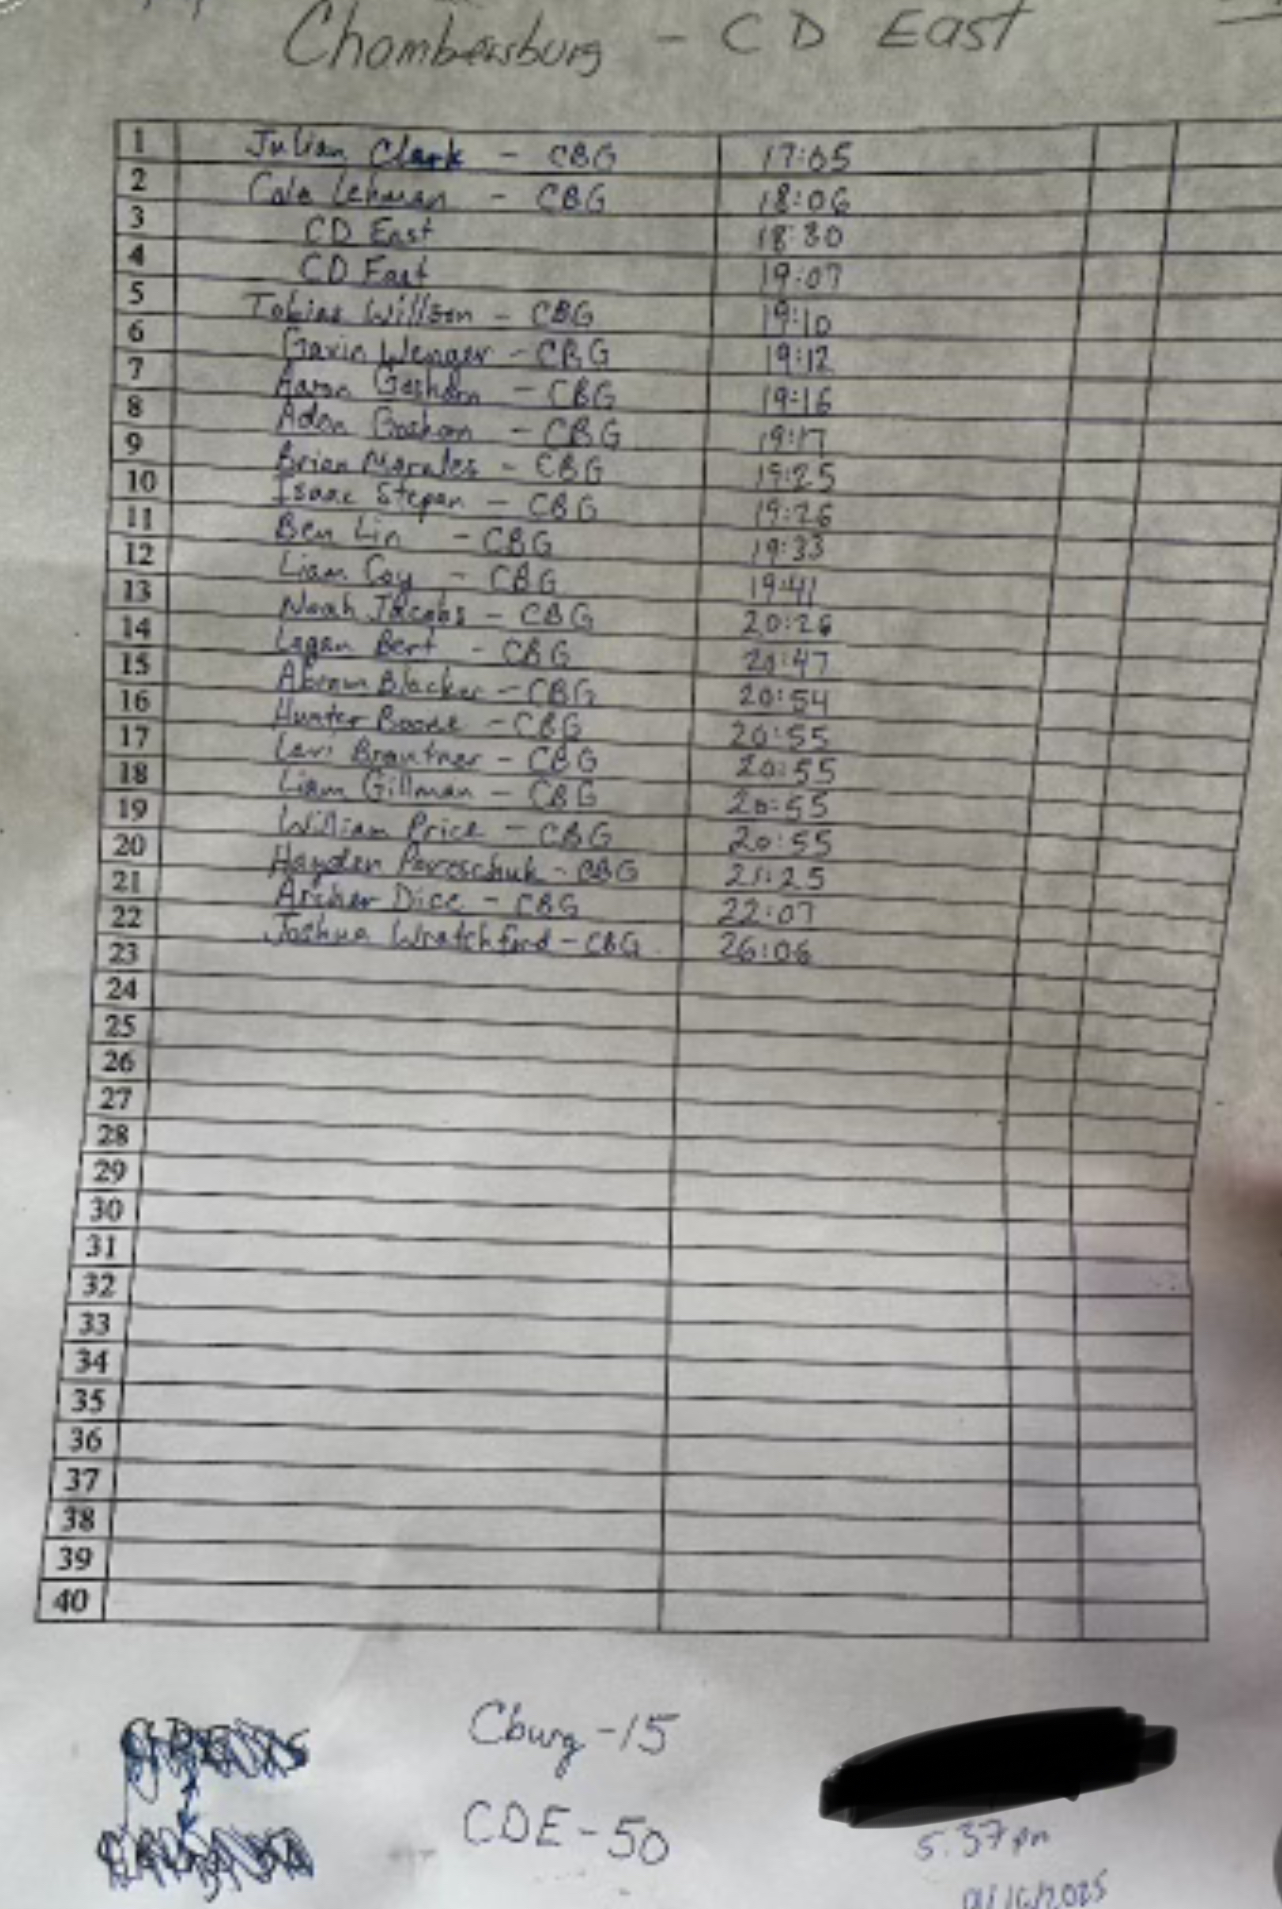 Chambersburg - CD East
1 Julian Clark - CBG 17:05
2 Cole Lehman - CBG 18:06
3 CD East 18:30
4 CD East 19:07
5 Tobias Willson - CBG 19:10
6 Gavin Wenger - CBG 19:12
7 Aaron Goshorn - CBG 19:16
8 Adon Goshorn - CBG 19:17
9 Brian Morales - CBG 19:25
10 Isaac Stepan - CBG 19:26
11 Ben Lin - CBG 19:33
12 Liam Coy - CBG 19:41
13 Noah Jacobs - CBG 20:26
14 Logan Bert - CBG 20:47
15 Abram Blacker - CBG 20:54
16 Hunter Boone - CBG 20:55
17 Levi Brautner - CBG 20:55
18 Liam Gillman - CBG 20:55
19 William Price - CBG 20:55
20 Hayden Poreschuk - CBG 21:25
21 Archer Dice - CBG 22:07
22 Joshua Wratchford - CBG 26:06
23
24
25
26
27
28
29
30
31
32
33
34
35
36
37
38
39
40
Cburg - 15
CDE - 50
5:37 pm
/16/2025